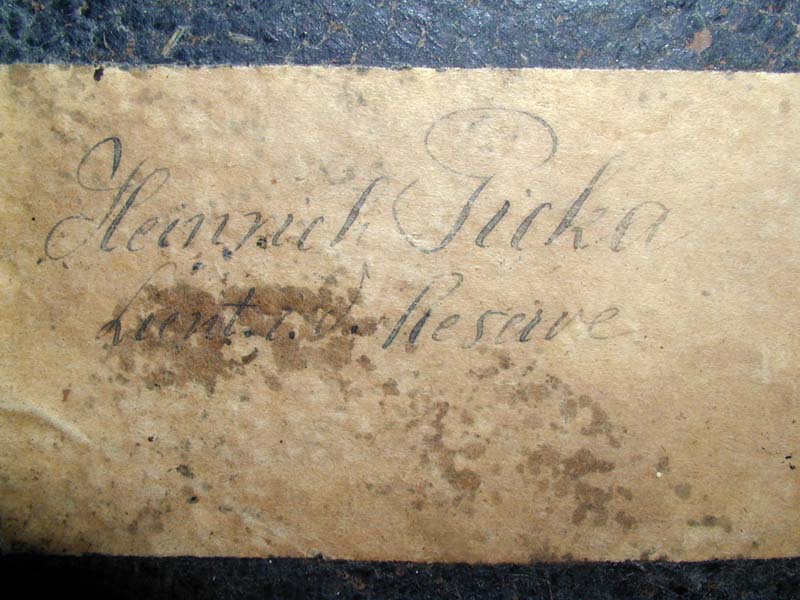 Heinrich Picka
Lieut. i. d. Reserve